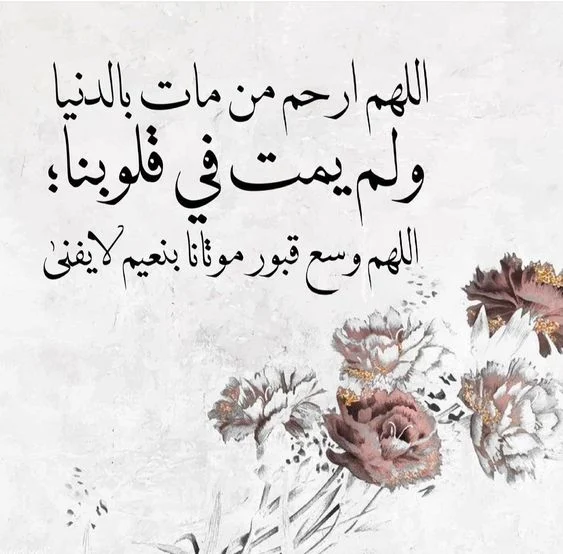 اللهم ارحم من مات بالدنيا
ولم يمت في قلوبنا؛
اللهم وسع قبور موتانا بنعيم لايفنى